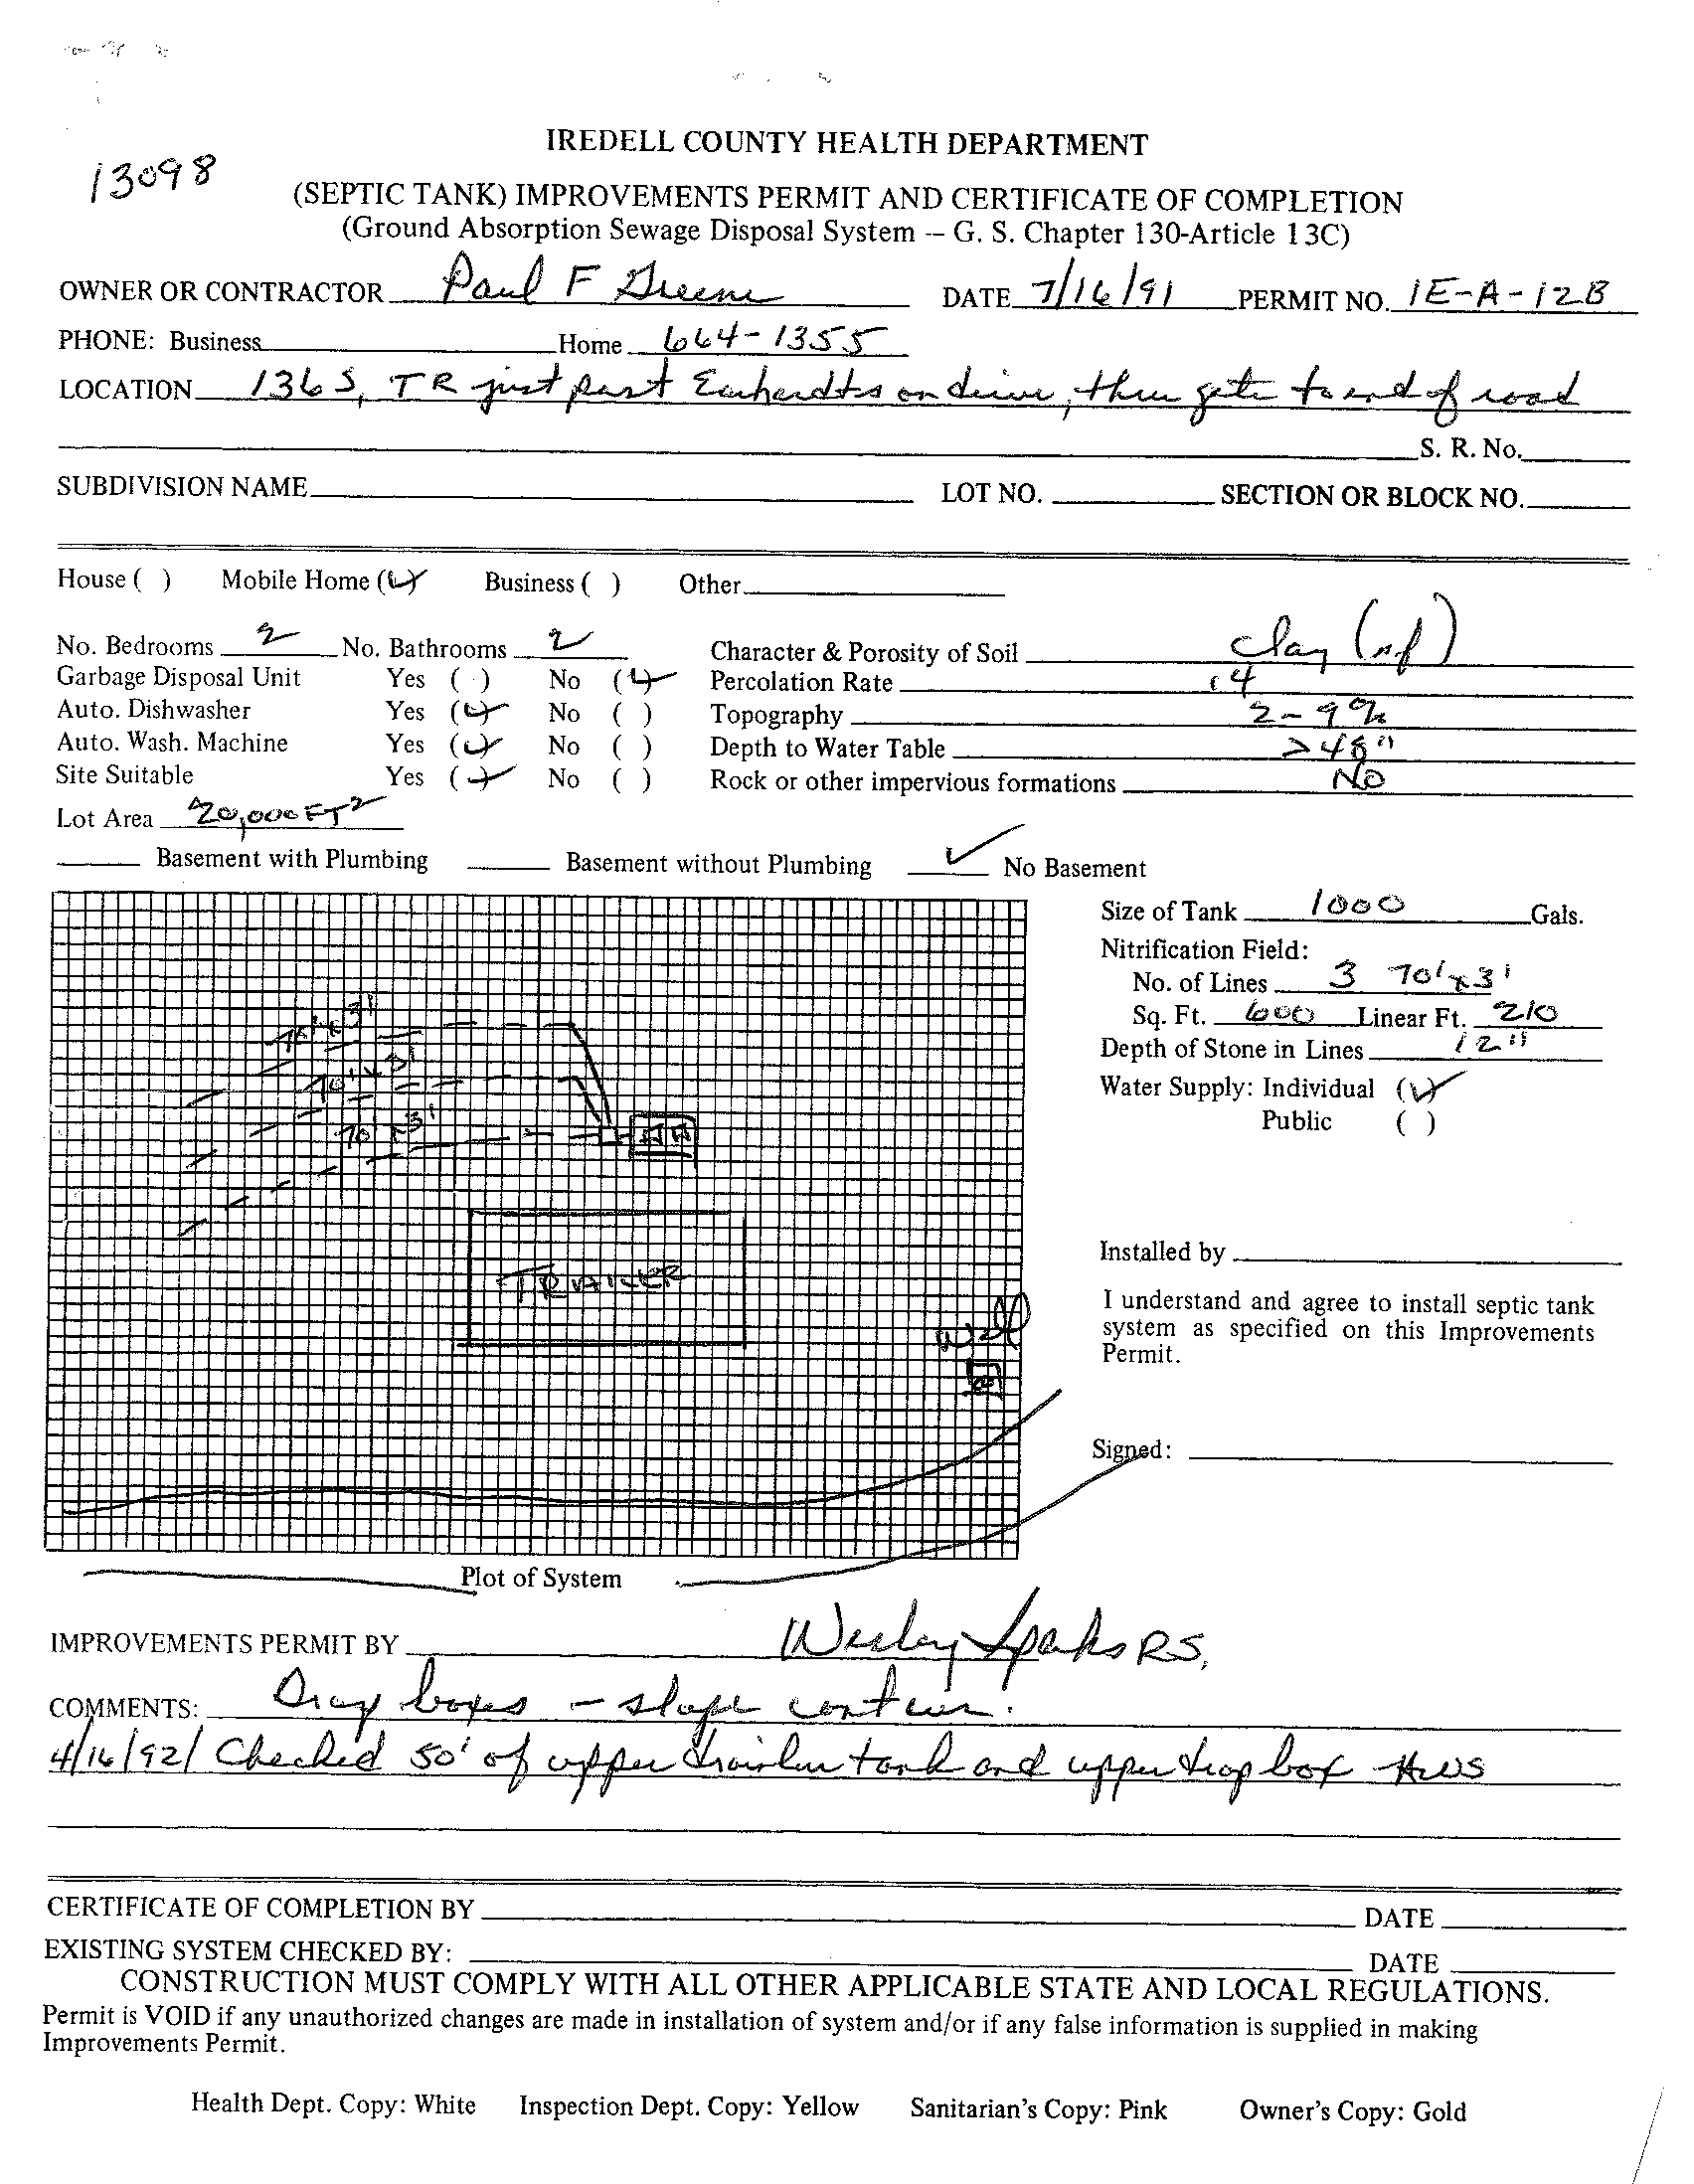 IREDELL COUNTY HEALTH DEPARTMENT
13098
(SEPTIC TANK) IMPROVEMENTS PERMIT AND CERTIFICATE OF COMPLETION
(Ground Absorption Sewage Disposal System – G. S. Chapter 130-Article 13C)
OWNER OR CONTRACTOR Paul F Greene DATE 7/16/91 PERMIT NO. 1E-A-12B
PHONE: Business Home 664-1355
LOCATION 136 S, TR just past Earhardts on drive, thru gate to end of road
S. R. No.
SUBDIVISION NAME LOT NO. SECTION OR BLOCK NO.
House ( ) Mobile Home (✓) Business ( ) Other
No. Bedrooms 2 No. Bathrooms 2 Character & Porosity of Soil clay
Garbage Disposal Unit Yes ( ) No (✓) Percolation Rate .4
Auto. Dishwasher Yes (✓) No ( ) Topography 2-9%
Auto. Wash. Machine Yes (✓) No ( ) Depth to Water Table >48"
Site Suitable Yes (✓) No ( ) Rock or other impervious formations NO
Lot Area 20,000 FT²
Basement with Plumbing Basement without Plumbing ✓ No Basement
Size of Tank 1000 Gals.
Nitrification Field:
No. of Lines 3 70'x3'
Sq. Ft. 600 Linear Ft. 210
Depth of Stone in Lines 12"
Water Supply: Individual (✓)
Public ( )
70'x3'
70'x3'
70'x3'
TRAILER
well
Installed by
I understand and agree to install septic tank
system as specified on this Improvements
Permit.
Signed:
Plot of System
IMPROVEMENTS PERMIT BY Wesley Sparks RS,
COMMENTS: Drop boxes - slope contour.
4/16/92/ Checked 50' of upper drainline tank and upper drop box HWS
CERTIFICATE OF COMPLETION BY DATE
EXISTING SYSTEM CHECKED BY: DATE
CONSTRUCTION MUST COMPLY WITH ALL OTHER APPLICABLE STATE AND LOCAL REGULATIONS.
Permit is VOID if any unauthorized changes are made in installation of system and/or if any false information is supplied in making
Improvements Permit.
Health Dept. Copy: White Inspection Dept. Copy: Yellow Sanitarian's Copy: Pink Owner's Copy: Gold